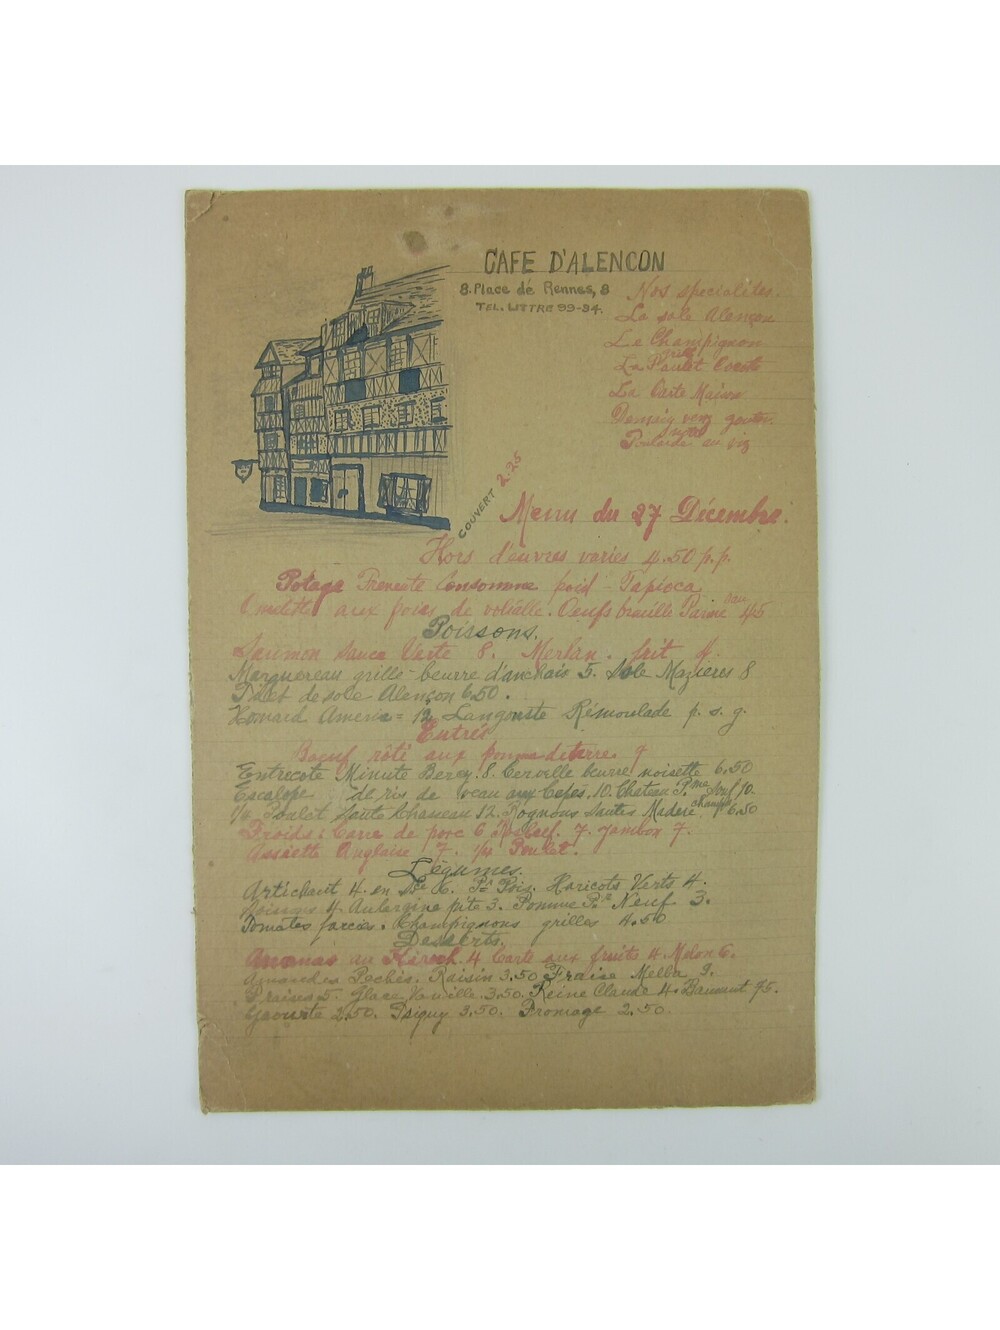 CAFE D'ALENCON
8. Place dé Rennes, 8
TEL. LITTRE 99-34.
Nos specialites.
La sole Alencon
Le Champignon
grillé
La Poulet Cocote
La Carte Maison
Poularde au riz
COUVERT 2.25
Menu du 27 Décembre.
Hors d'euvres varies 4.50 p.p.
Potage Consomme froid - Tapioca
Omelette aux foies de volialle. Oeufs Parme 4/5
Poissons.
Saumon Sauce Verte 8. Merlan frit 4.
Marquereau grille beurre d'anchois 5. Sole Mazieres 8
Filet de sole Alençon 6.50.
Homard Americ = 12 Langouste Rémoulade p. s. g.
Entrés
Boeuf rôti aux pomme deterre 9
Entrecote Minute Bercy. 8. Cervelle beurre noisette 6.50
Escalope de ris de veau aux Cepes. 10. Chateau Pme Souf 10.
1/4 Poulet Saute Chasseau 12. Rognons Sautes Madere champ 6.50
Froids: Carre de porc 6 Rosbeef. 7. Jambon 7.
Assiette Anglaise 7. 1/4 Poulet.
Légumes.
Artichaut 4. en Sce 6. Pts Pois. Haricots Verts 4.
4 Aubergine 3. Pomme Neuf 3.
Tomates farcies. Champignons grilles 4.50
Desserts.
Ananas au Kirsch. 4 Carte aux fruits 4. Melon 6.
Amandes Pechés. Raisin 3.50 Fraise Melba 9.
Fraises 5. Glace 3.50. Reine Claude 4.
Yaourte 2.50. 3.50. Fromage 2.50.